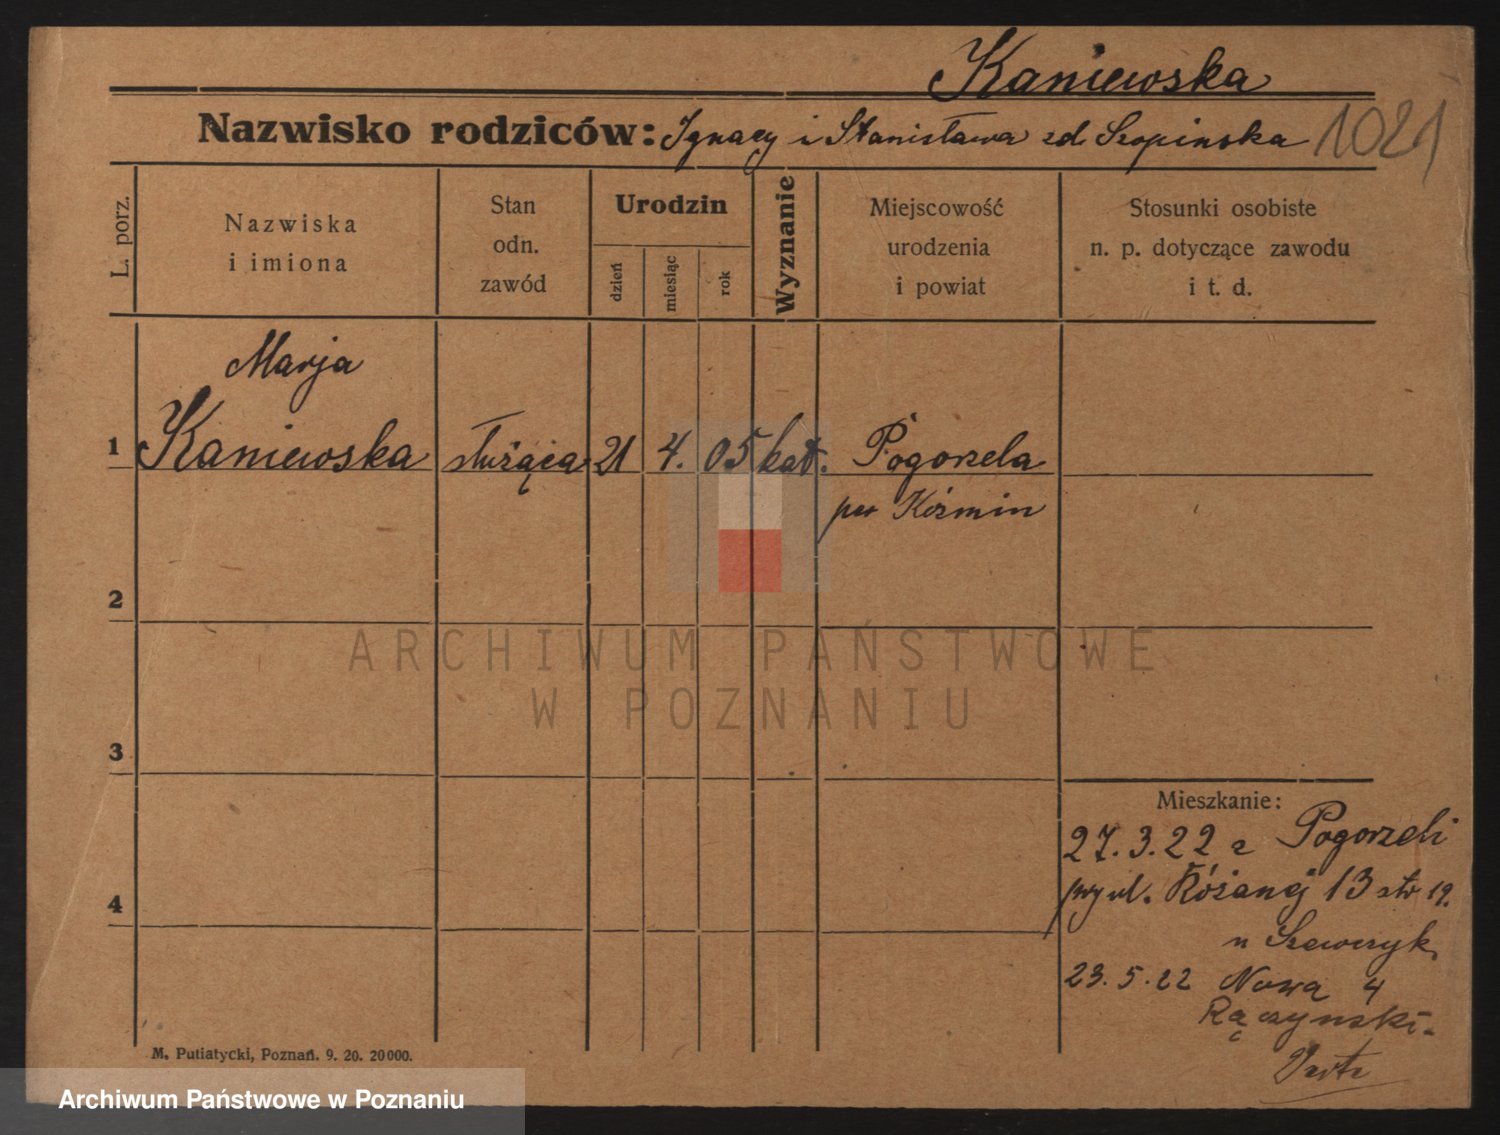 Kaniewska
Nazwisko rodziców: Ignacy i Stanisława zd Szopinska 1021
L. porz.
Nazwiska
i imiona
Stan
odn.
zawód
Urodzin
dzień
miesiąc
rok
Wyznanie
Miejscowość
urodzenia
i powiat
Stosunki osobiste
n. p. dotyczące zawodu
i t. d.
Marja
1 Kaniewska służąca 21 4. 05 kat. Pogorzela
pow Koźmin
2
3
4
ARCHIWUM PAŃSTWOWE
W POZNANIU
Mieszkanie:
27.3.22 z Pogorzeli
przy ul. Różanej 13 13 19.
u Szewczyk
23.5.22 Nowa 4
Rączynski-
M. Putiatycki, Poznań. 9. 20. 20000.
Archiwum Państwowe w Poznaniu